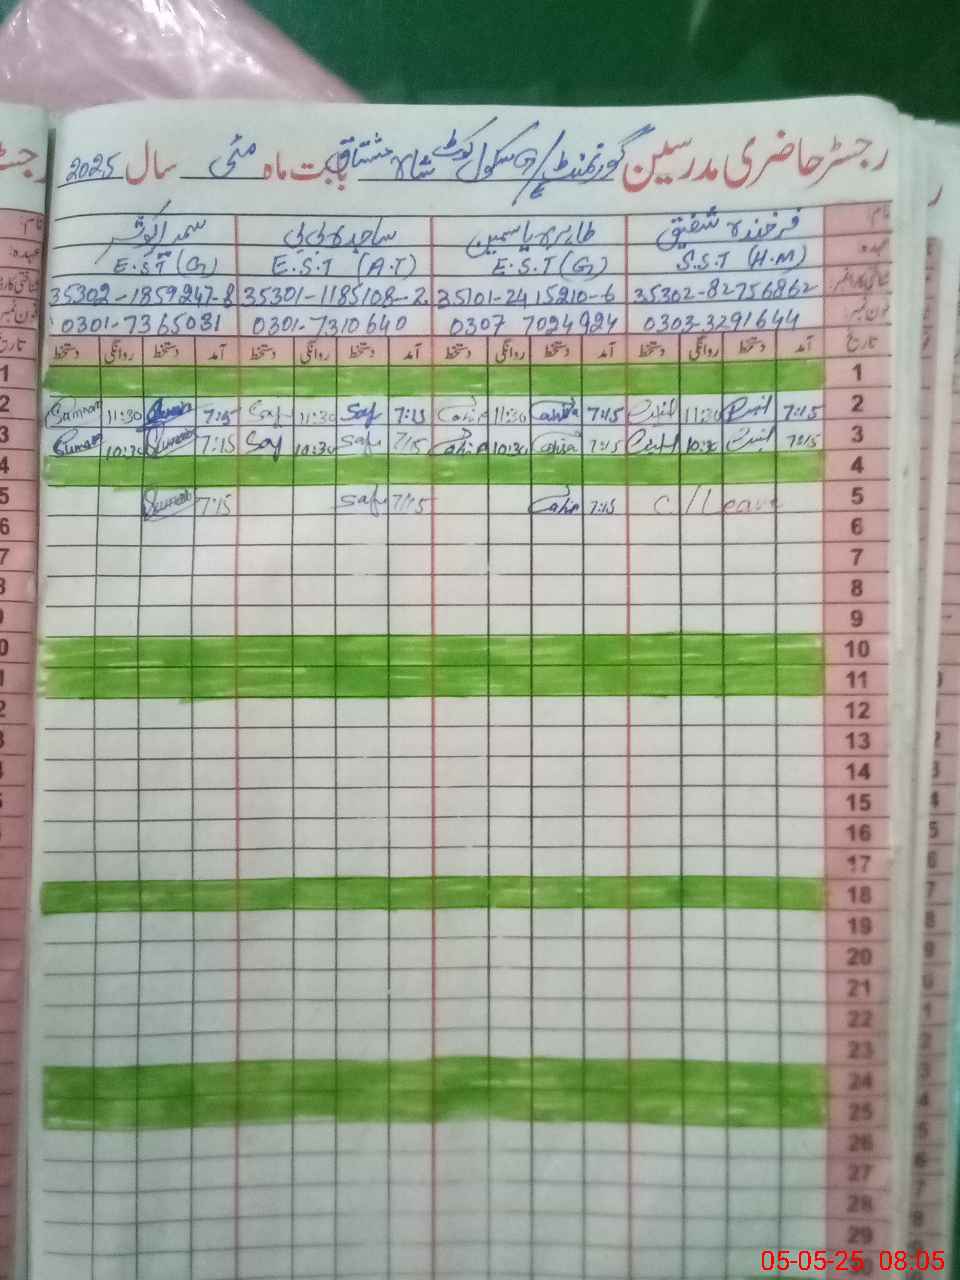 رجسٹر حاضری مدرسین گورنمنٹ گ/ سکول کوٹ مشتاق شاہ بابت ماہ مئی سال 2025
نام: فرخندہ شفیق طاہرہ یاسمین ساجدہ بی بی سمیرا کوثر
عہدہ: S.S.T (H.M) E.S.T (G) E.S.T (A.T) E.S.T (G)
35302-82756862 35101-2415210-6 35301-1185108-2 35302-1859247-8
فون نمبر: 0303-3291644 0307 7024924 0301-7310640 0301-7365031
تاریخ آمد دستخط روانگی دستخط آمد دستخط روانگی دستخط آمد دستخط روانگی دستخط آمد دستخط روانگی دستخط
1
2 7:15 11:30 7:15 11:30 7:15 Saj 11:30 Saj 7:15 11:30
3 7:15 10:30 7:15 10:30 7:15 Saj 10:30 Saj 7:15 10:30
4
5 C/Leave 7:15 7:15 Saj 7:15
6
7
8
9
10
11
12
13
14
15
16
17
18
19
20
21
22
23
24
25
26
27
28
29
05-05-25 08:05